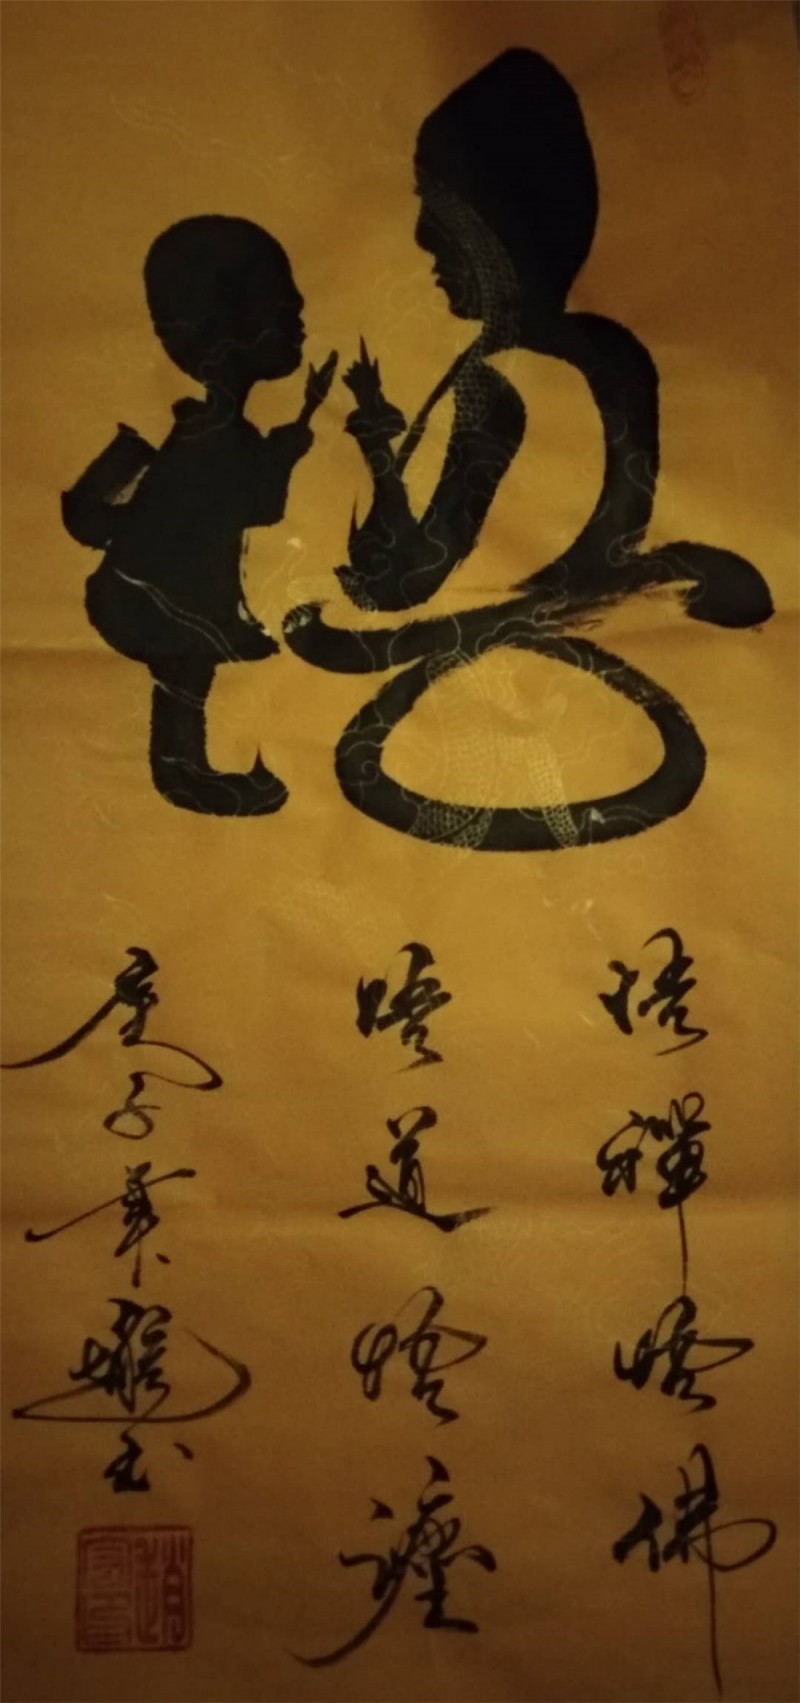 悟
悟禪悟佛
悟道悟
庚子年
玉